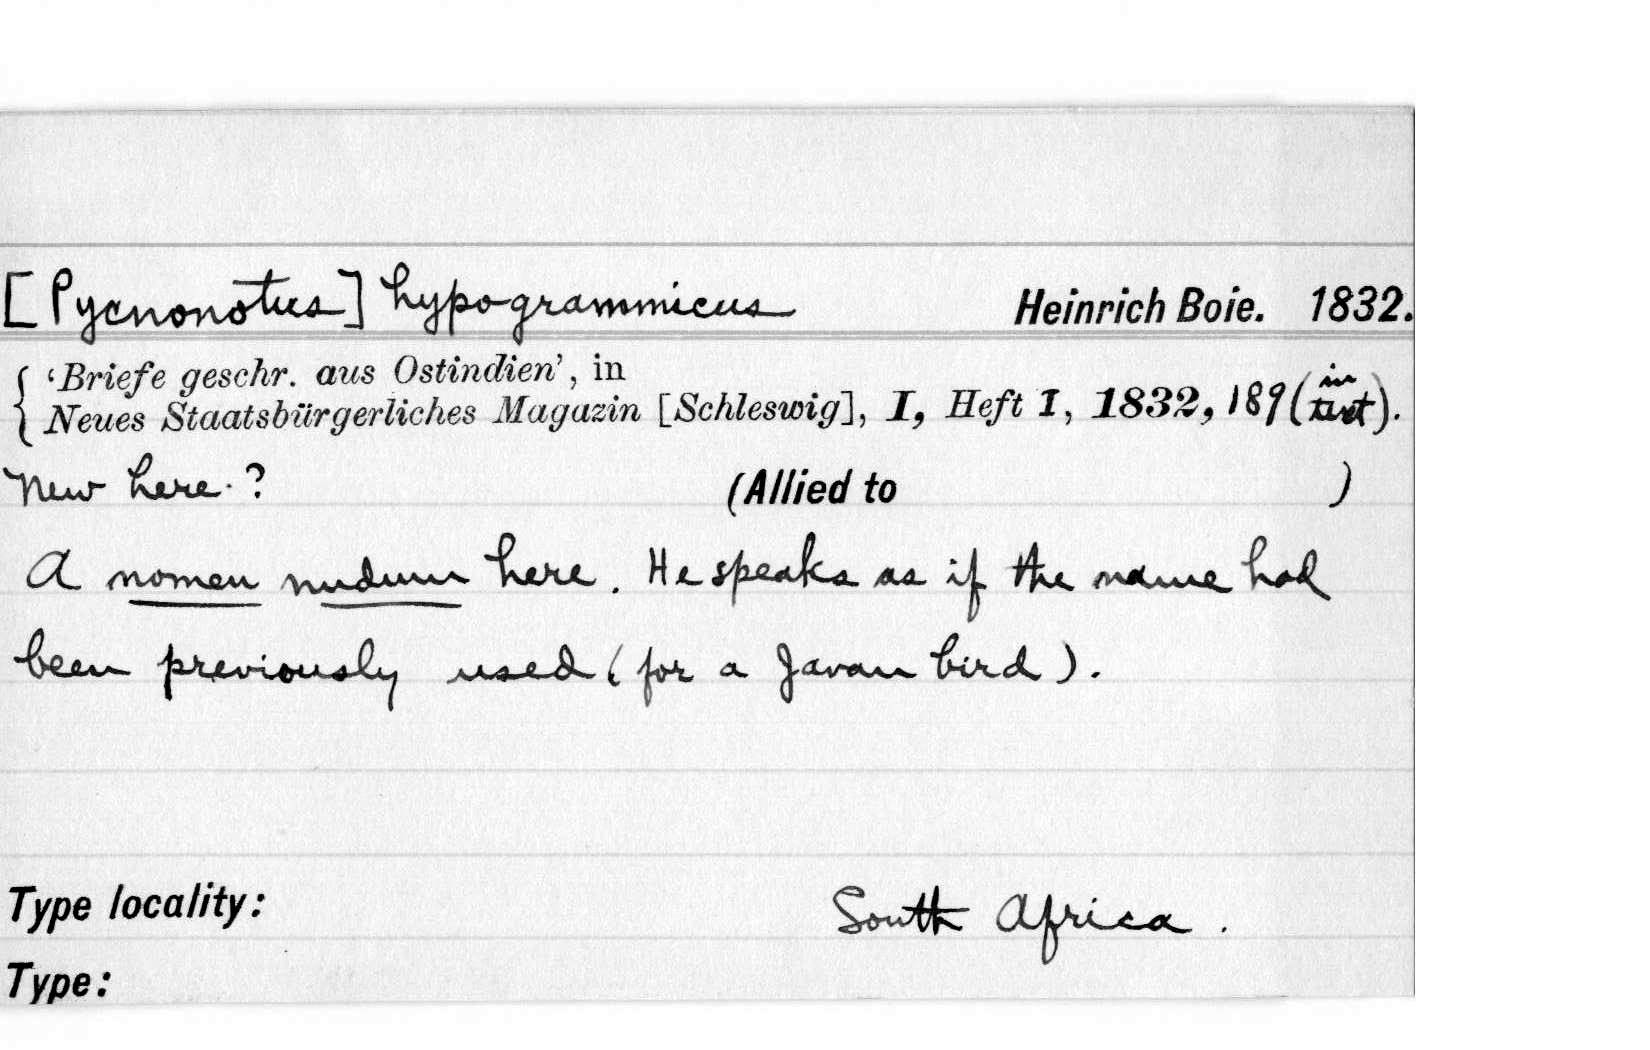 [Pycnonotus] hypogrammicus Heinrich Boie. 1832.
{ 'Briefe geschr. aus Ostindien', in
Neues Staatsbürgerliches Magazin [Schleswig], I, Heft I, 1832, 189 (in text).
New here ? (Allied to )
A nomen nudum here. He speaks as if the name had
been previously used (for a Javan bird).
Type locality: South Africa.
Type: